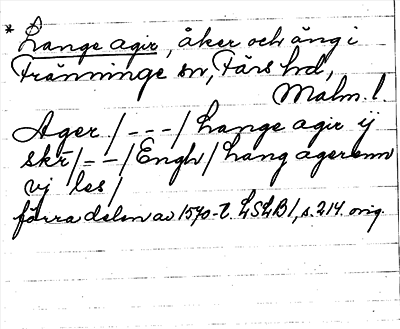 * Lange agir, åker och äng i
Tränninge sn, Färs hd,
Malm. l.
Ager / - - - / Lange agir ij
skr / - - / Engh / Lang agerenn
vj les /
förra delen av 1570-t. LSLB 1, s. 214. orig.